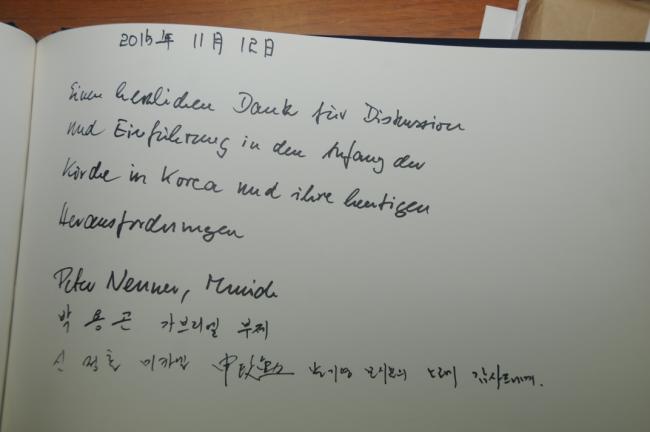 2015年 11月 12日
Einen herzlichen Dank für Diskussion
und Einführung in den Anfang der
Kirche in Korea und ihre heutigen
Herausforderungen
Peter Nenner, Munich
박 용 곤 가브리엘 부제
신 정 훈 미카엘 노래 감사드리며.